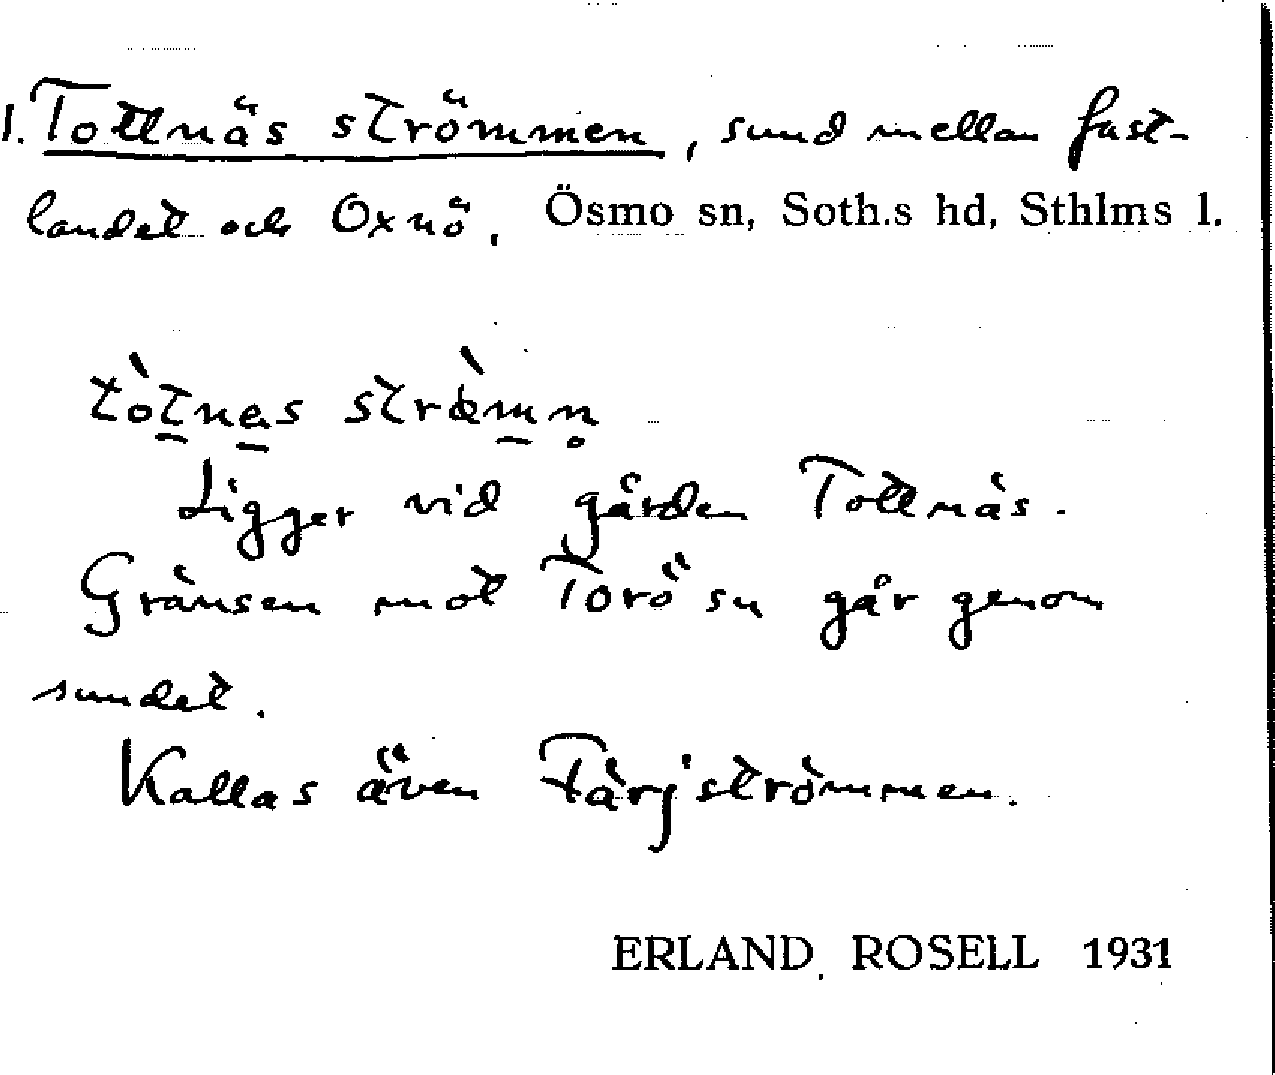 1. Tottnäs strömmen, sund mellan fast-
landet och Oxnö. Ösmo sn, Soth.s hd, Sthlms l.
tòt̠na̠s strœ̀m̠n̥
Ligger vid gården Tottnäs.
Gränsen mot Torö sn går genom
sundet.
Kallas även Färjströmmen.
ERLAND ROSELL 1931